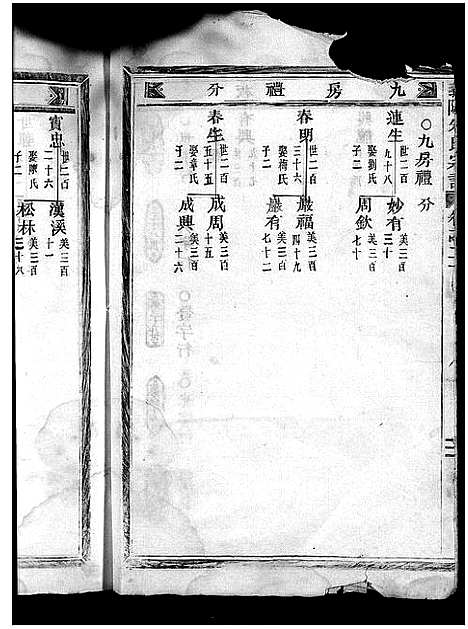 九房禮分
○九房禮分
蓮生 世二百九十八 娶劉氏 子二
妙有 美三百三十
周欽 美三百七十
春明 世二百三十六 娶梅氏 子二
嚴福 美三百四十九
嚴有 美三百七十二
春生 世二百五十五 娶章氏 子二
成周 美三百十五
成興 美三百二十六
賓忠 世二百二十六 娶陳氏 子二
漢溪 美三百十一
松林 美三百三十八